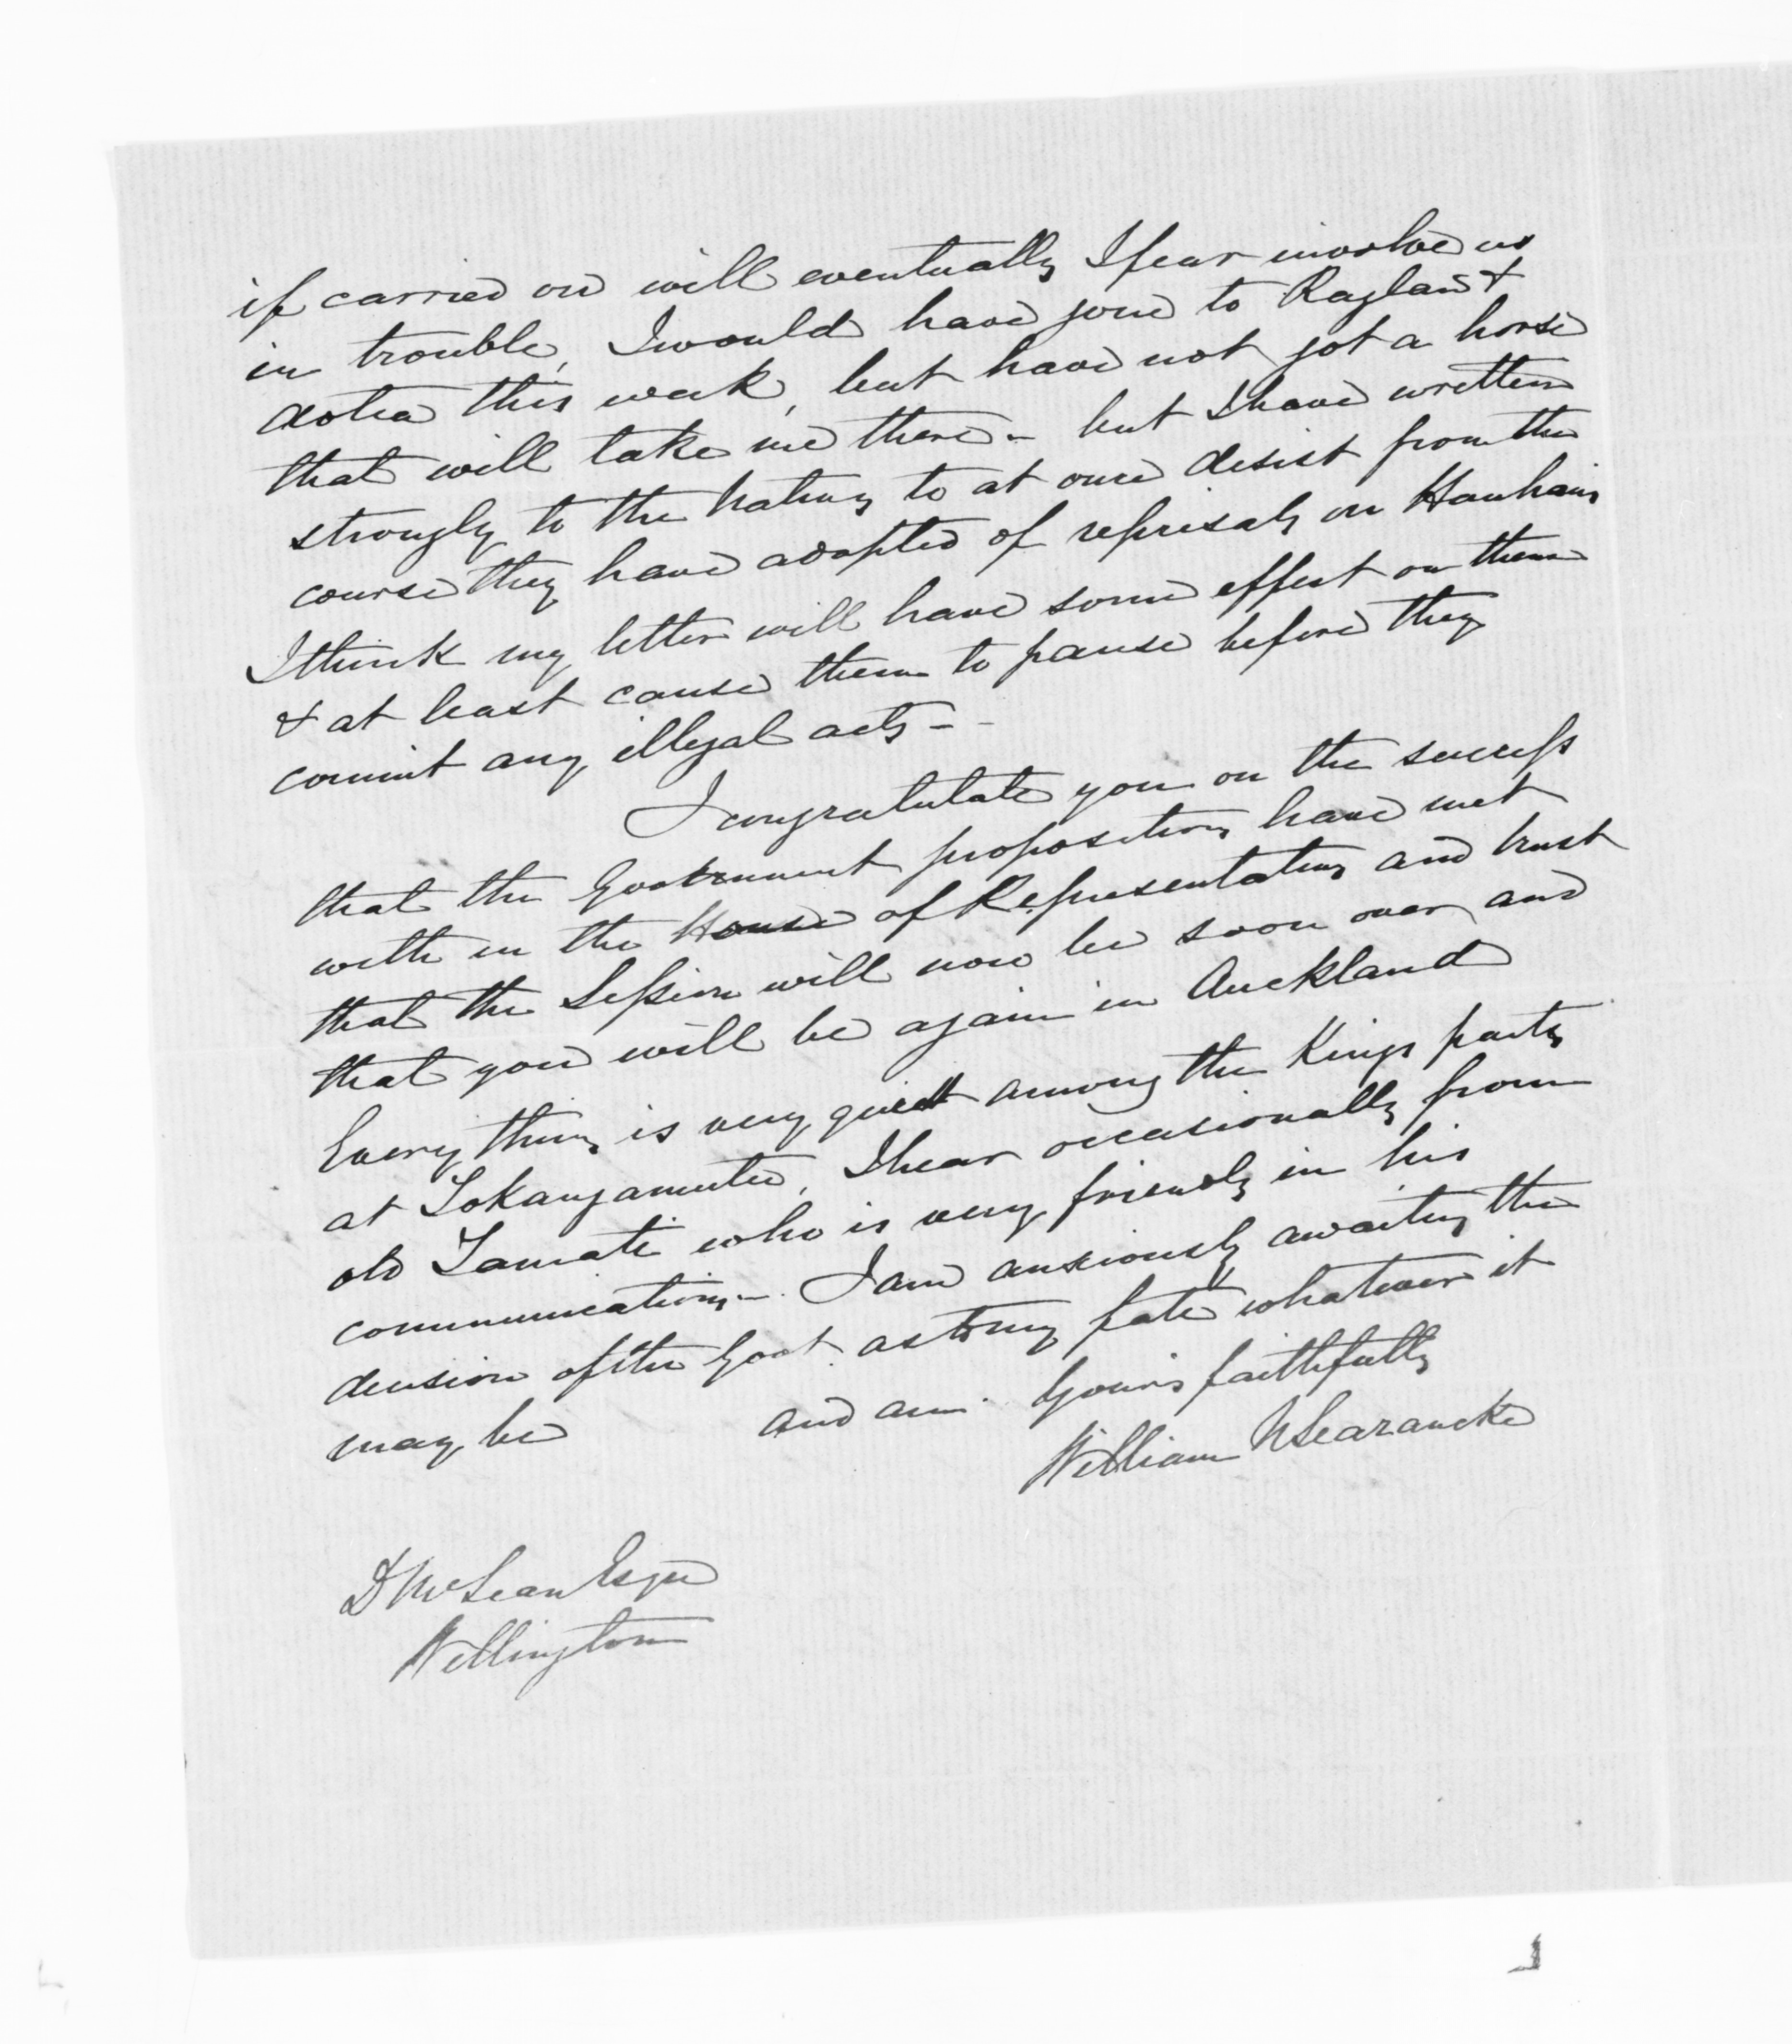 if carried on will eventually I fear involve us
in trouble, I would have gone to Raglan &
Aotea this week, but have not got a horse
that will take me there - but I have written
strongly to the Natives to at once desist from the
course they have adopted of reprisals on Hauhaus
I think my letter will have some effect on them
& at least cause them to pause before they
commit any illegal acts - -
I congratulate you on the success
that the Government propositions have met
with in the House of Representatives and trust
that the Session will now be soon over and
that you will be again in Auckland
Every thing is very quiet among the Kings party
at Tokangamutu, I hear occasionally from
old Tamati who is very friendly in his
communications -. I am anxiously awaiting the
decision of the Govt. as to my fate whatever it
may be and am. Yours faithfully
William N Searancke
D McLean Esqre
Wellington